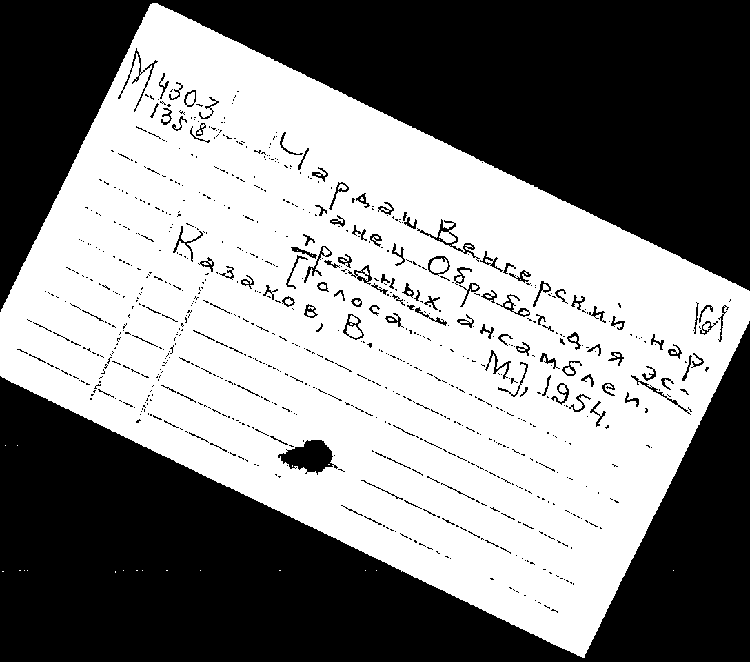 М 430-3
135 8
161
Чардаш Венгерский нар.
танец Обработ. для эс-
традных ансамблей.
[Голоса М.], 1954.
Казаков, В.